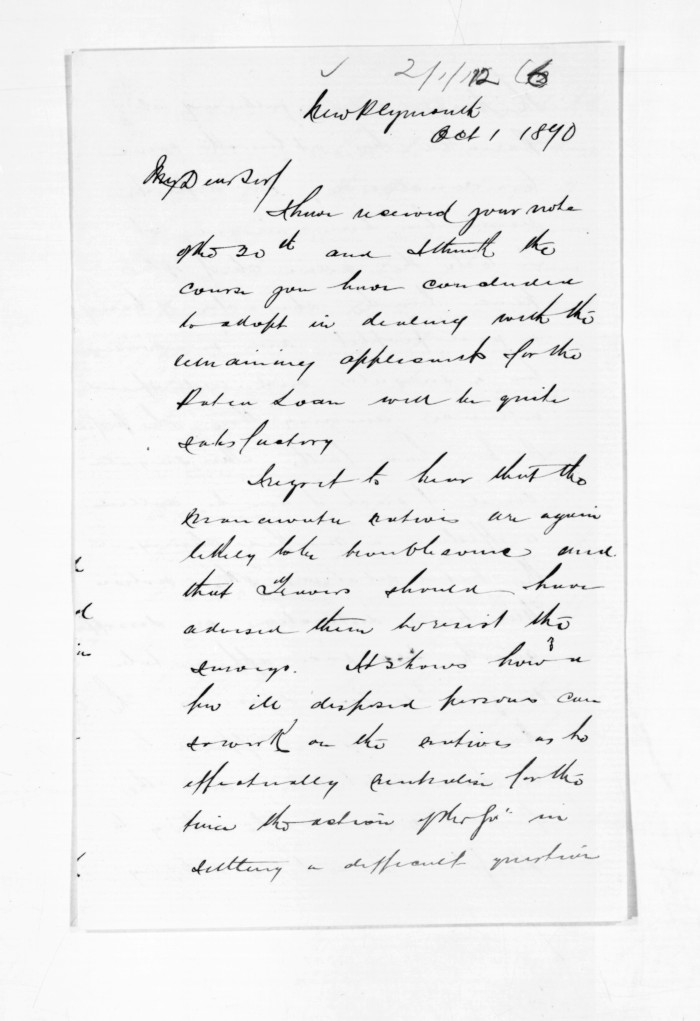 2/1/72 (6
New Plymouth
Oct 1 1870
My Dear Sir
I have received your note
of the 30th and I think the
course you have concluded
to adopt in dealing with the
remaining applicants for the
Patea Loan will be quite
satisfactory
I regret to hear that the
Manawatu natives are again
likely to be troublesome and
that Travers should have
advised them to resist the
surveys. It shows how a
few ill disposed persons can
so work on the natives as to
effectually neutralise for the
time the action of the Govt in
settling a difficult question